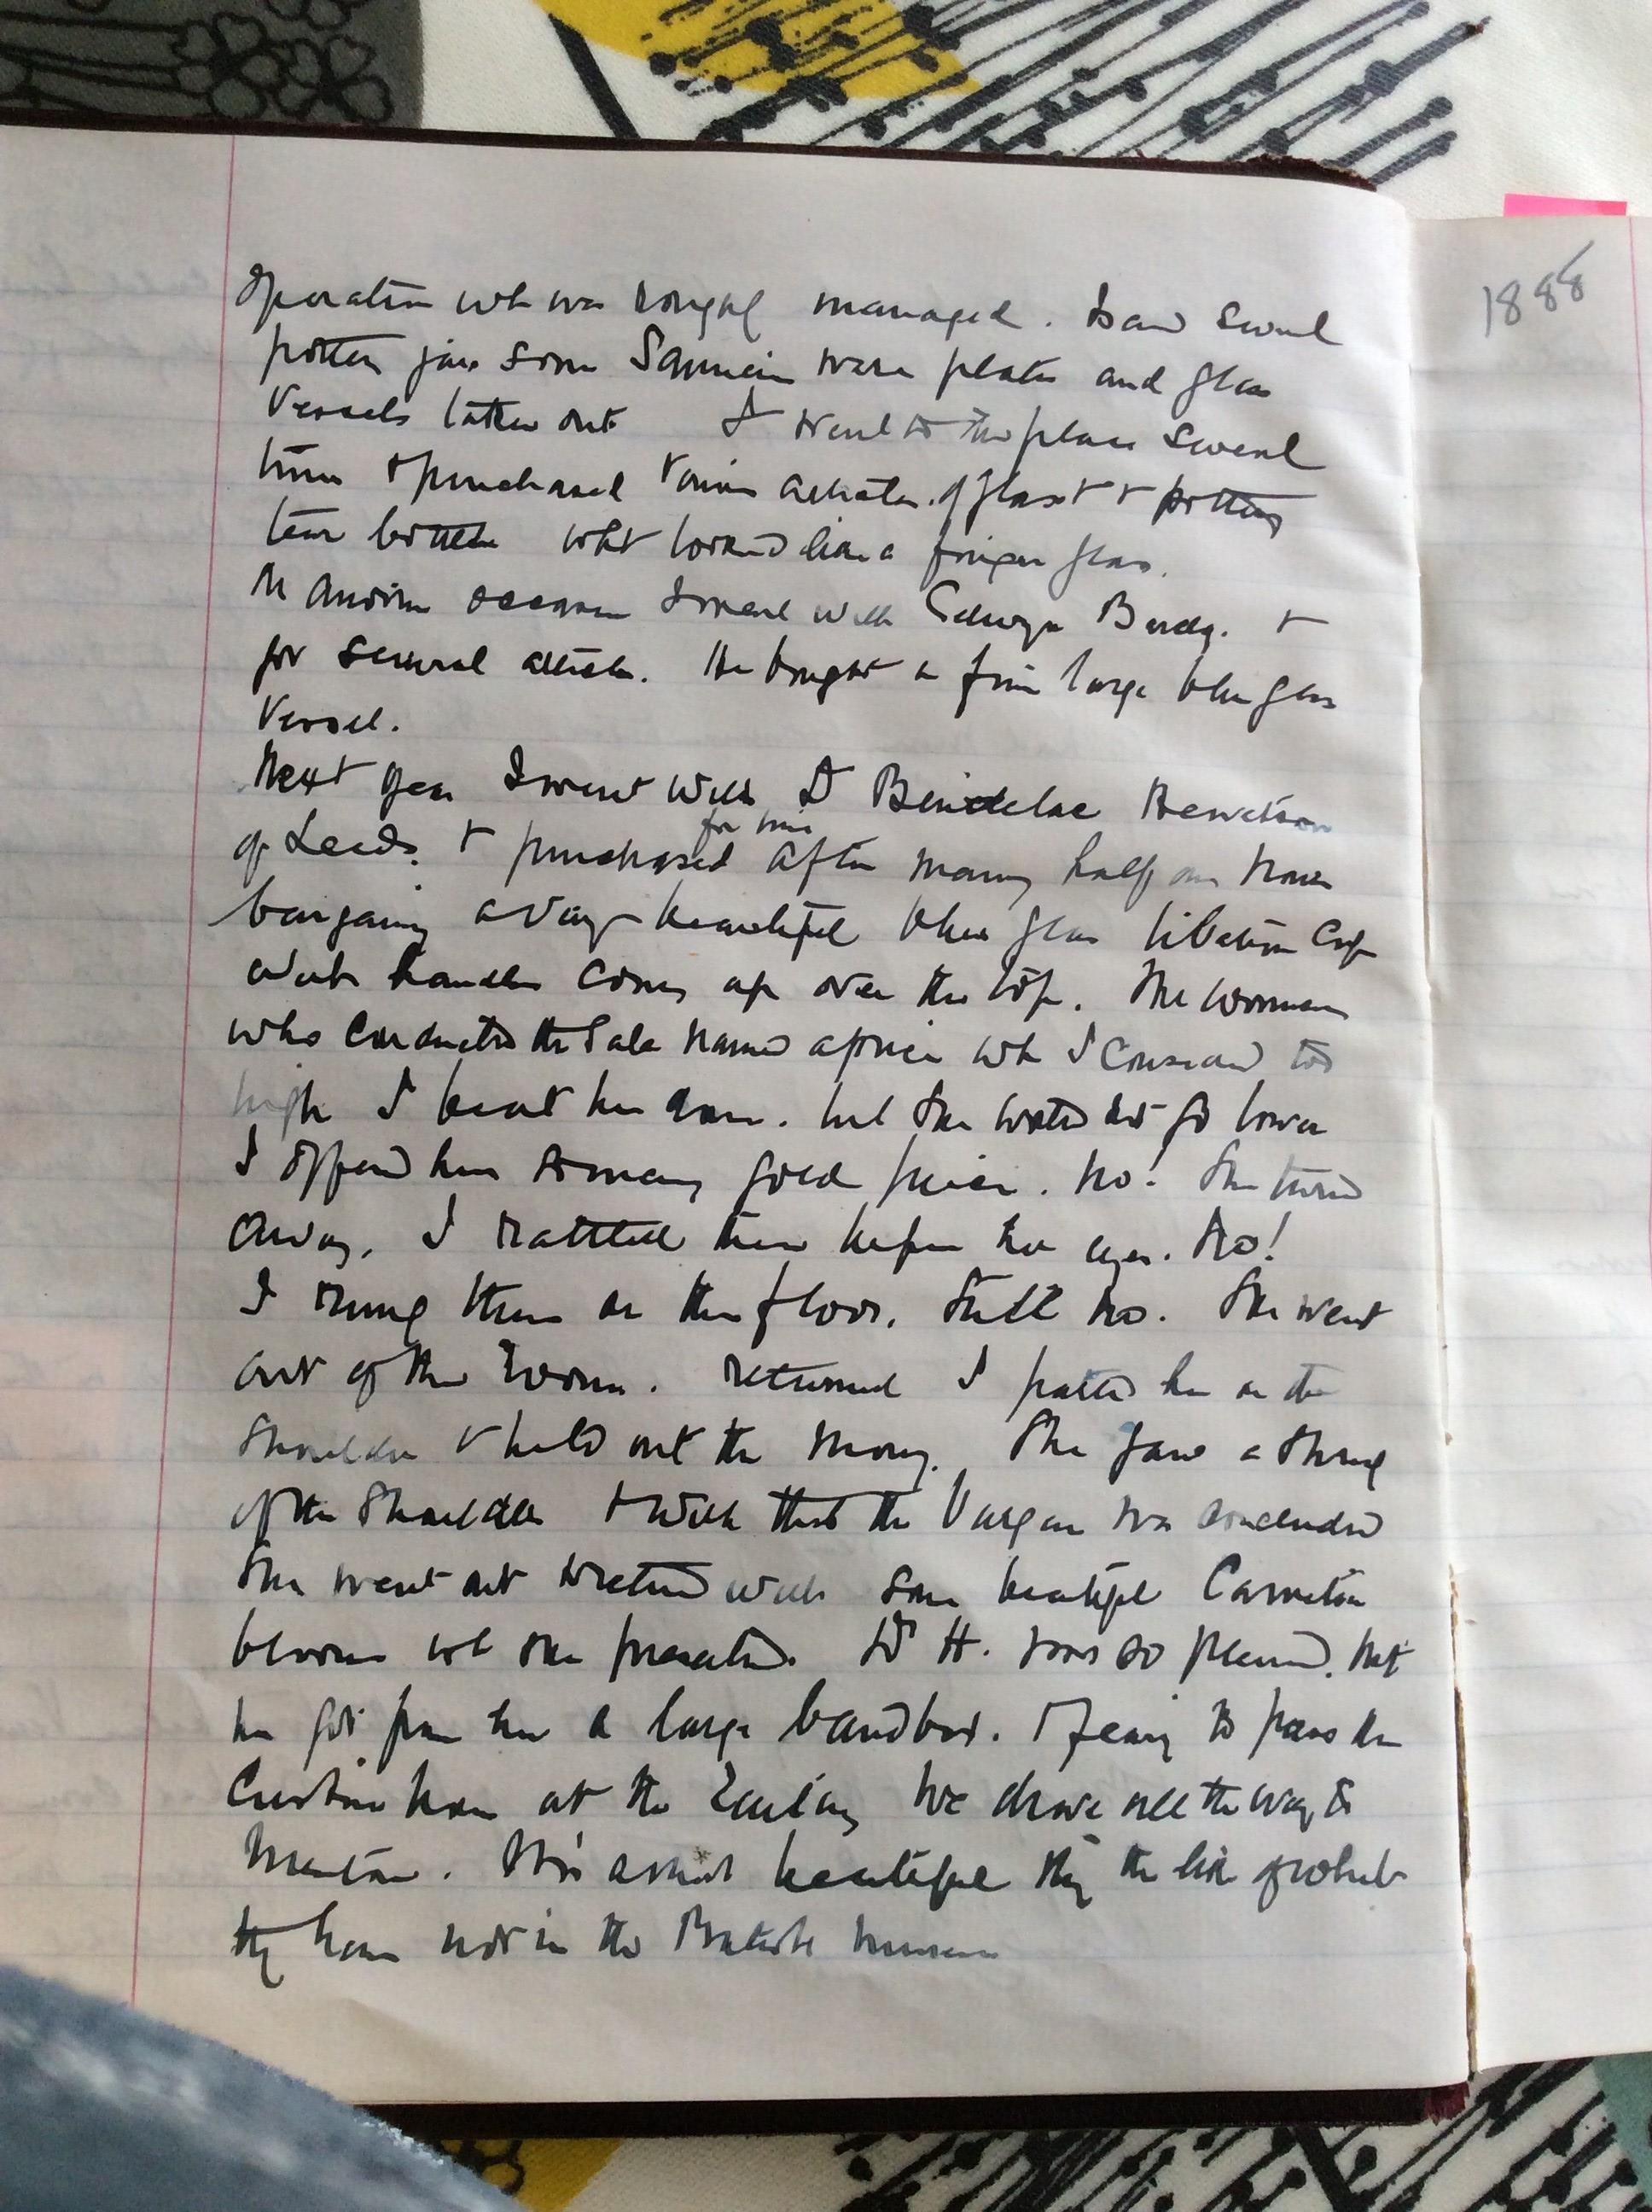 operation wh was roughly managed. I saw several
pottery jars some Samian ware plates and glass
Vessels taken out I went to the place several
times & purchased various articles of glass & pottery
tear bottles what looked like a finger glass.
On another occasion I went with Selwyn &
for several articles. He bought a fine large blue glass
Vessel.
Next year I went with Dr Bendelac Hewetson
of Leeds. & purchased for him after many half an hours
bargaining a very beautiful blue glass libation Cup
with handles coming up over the top. The woman
who conducted the Sale named a price wh I considered too
high I beat her down. but she would not go lower
I offered her so many gold pieces. No! She turned
away. I rattled them before her eyes. No!
I rung them on the floor. Still no. She went
out of the room. returned I patted her on the
shoulder & held out the money. She gave a shrug
of the shoulder & with that the bargain was concluded
She went out & returned with some beautiful Carnation
blooms wh she presented. Dr H. was so pleased that
he got from her a large bandbox. & fearing to pass the
Custom house at the Railway we drove all the way to
Mentone. It is a most beautiful thing the like of which
they have not in the British Museum
1888